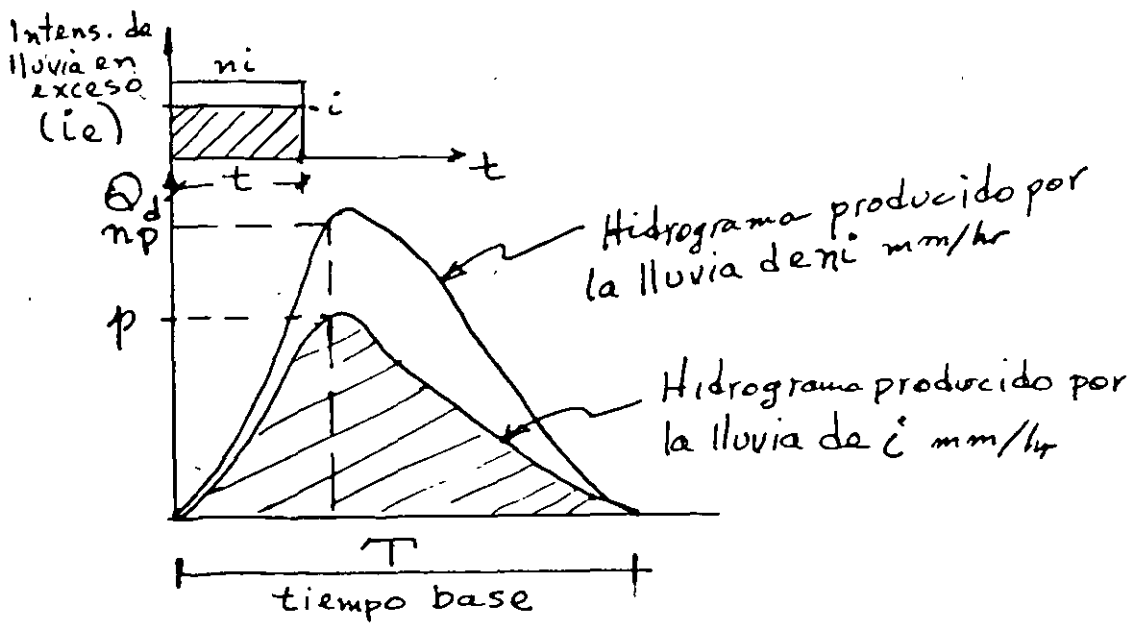 Intens. de
lluvia en
exceso
(ie)
ni
i
t
t
Qd
np
p
Hidrograma producido por
la lluvia de ni mm/hr
Hidrograma producido por
la lluvia de i mm/hr
T
tiempo base